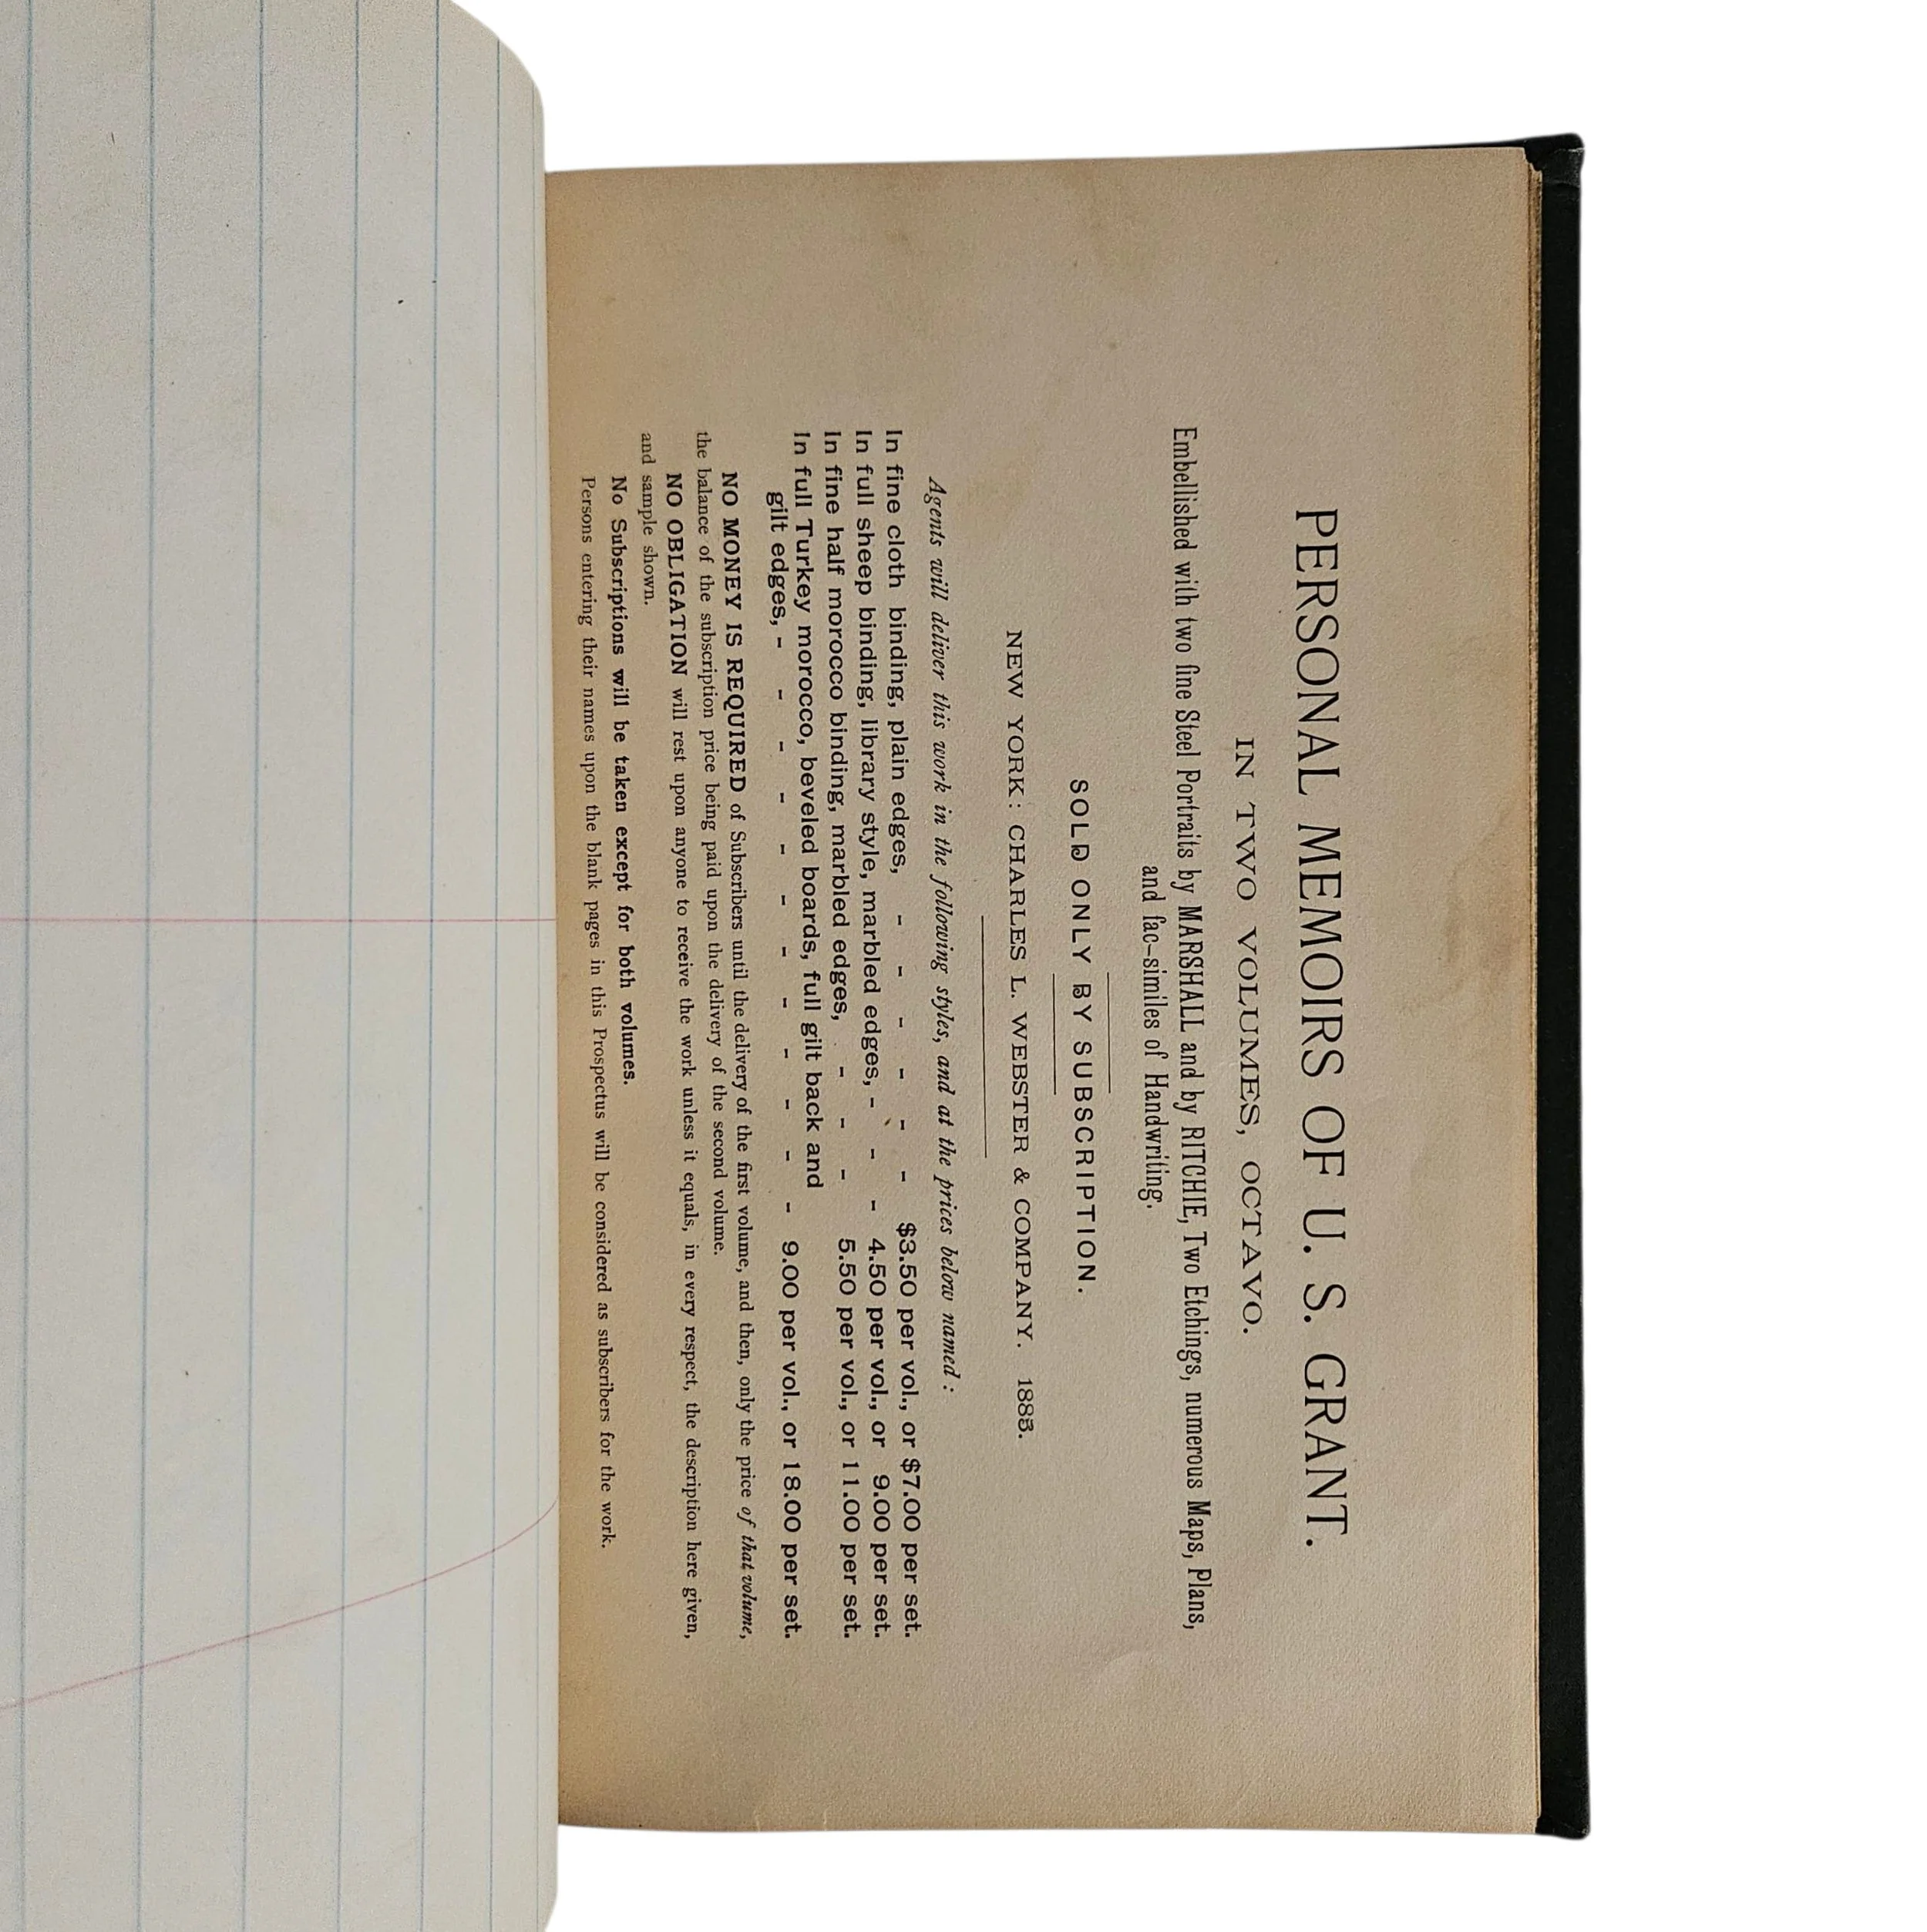 PERSONAL MEMOIRS OF U. S. GRANT.
IN TWO VOLUMES, OCTAVO.
Embellished with two fine Steel Portraits by MARSHALL and by RITCHIE, Two Etchings, numerous Maps, Plans,
and fac-similes of Handwriting.
SOLD ONLY BY SUBSCRIPTION.
NEW YORK: CHARLES L. WEBSTER & COMPANY. 1885.
Agents will deliver this work in the following styles, and at the prices below named:
In fine cloth binding, plain edges, - - - - - - $3.50 per vol., or $7.00 per set.
In full sheep binding, library style, marbled edges, - - - 4.50 per vol., or 9.00 per set.
In fine half morocco binding, marbled edges, - - - 5.50 per vol., or 11.00 per set.
In full Turkey morocco, beveled boards, full gilt back and
gilt edges, - - - - - - - - - - - - 9.00 per vol., or 18.00 per set.
NO MONEY IS REQUIRED of Subscribers until the delivery of the first volume, and then, only the price of that volume,
the balance of the subscription price being paid upon the delivery of the second volume.
NO OBLIGATION will rest upon anyone to receive the work unless it equals, in every respect, the description here given,
and sample shown.
No Subscriptions will be taken except for both volumes.
Persons entering their names upon the blank pages in this Prospectus will be considered as subscribers for the work.